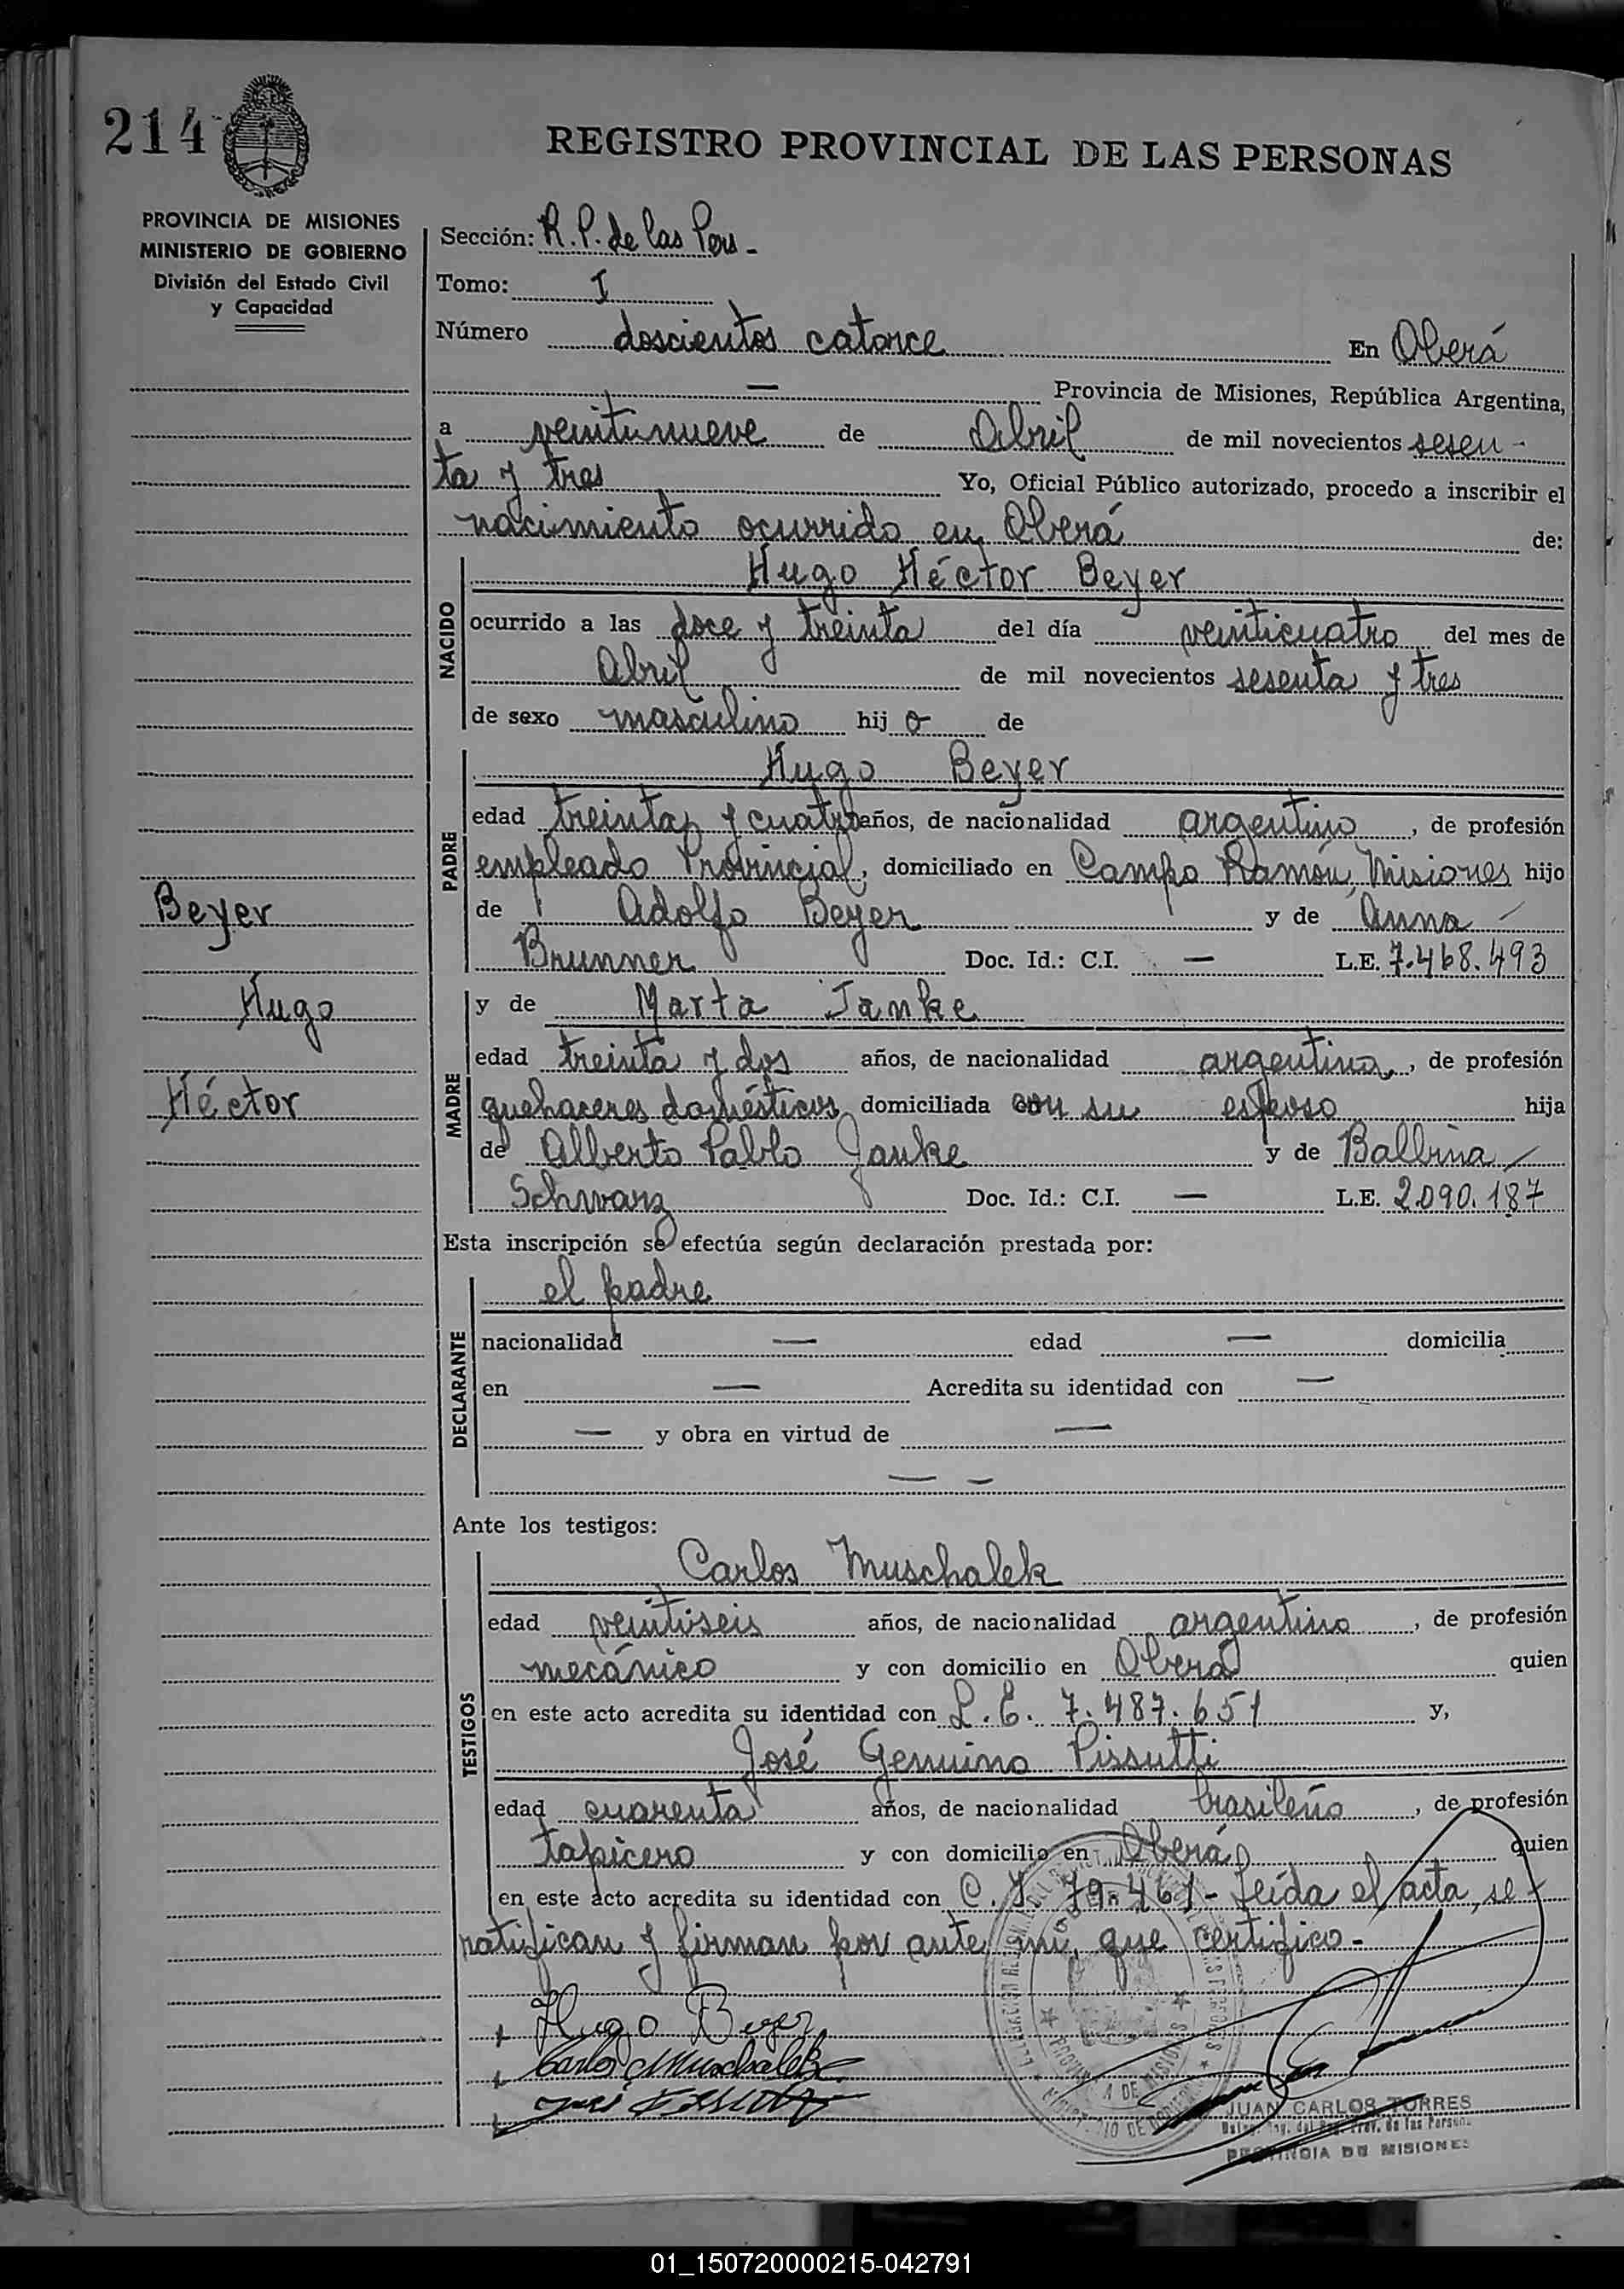 214
REGISTRO PROVINCIAL DE LAS PERSONAS
PROVINCIA DE MISIONES
MINISTERIO DE GOBIERNO
División del Estado Civil
y Capacidad
Sección: R. P. de las Pers -
Tomo: I
Número doscientos catorce En Oberá
— Provincia de Misiones, República Argentina,
a veintinueve de Abril de mil novecientos sesen -
ta y tres Yo, Oficial Público autorizado, procedo a inscribir el
nacimiento ocurrido en Oberá de:
NACIDO
Hugo Héctor Beyer
ocurrido a las doce y treinta del día veinticuatro del mes de
Abril de mil novecientos sesenta y tres
de sexo masculino hij o de
PADRE
Hugo Beyer
edad treinta y cuatro años, de nacionalidad argentino, de profesión
empleado Provincial, domiciliado en Campo Ramón, Misiones hijo
de Adolfo Beyer y de Anna
Brunner Doc. Id.: C.I. — L.E. 7.468.493
Beyer
Hugo
Héctor
MADRE
y de Marta Janke
edad treinta y dos años, de nacionalidad argentina, de profesión
quehaceres domésticos domiciliada con su esposo hija
de Alberto Pablo Janke y de Balbina
Schwarz Doc. Id.: C.I. — L.E. 2.090.187
Esta inscripción se efectúa según declaración prestada por:
DECLARANTE
el padre
nacionalidad — edad — domicilia
en — Acredita su identidad con —
— y obra en virtud de —
— —
Ante los testigos:
TESTIGOS
Carlos Muschalek
edad veintiseis años, de nacionalidad argentino, de profesión
mecánico y con domicilio en Oberá quien
en este acto acredita su identidad con L. E. 7.487.651 y,
José Genuino Pissutti
edad cuarenta años, de nacionalidad brasileño, de profesión
tapicero y con domicilio en Oberá quien
en este acto acredita su identidad con C. I 79.461 - Leída el acta, se
ratifican y firman por ante mi, que certifico. -
Hugo Beyer
Carlos Muschalek
PROVINCIA DE MISIONES
JUAN CARLOS TORRES
PROVINCIA DE MISIONES
01_150720000215-042791